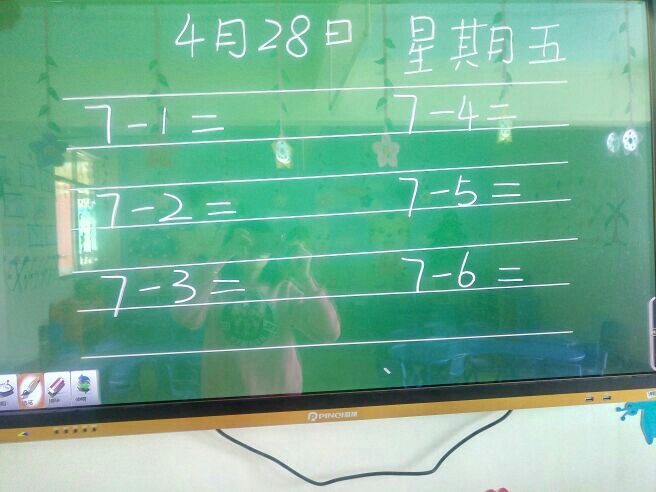 4月28日 星期五
7-1= 7-4=
7-2= 7-5=
7-3= 7-6=
PINQI品琪